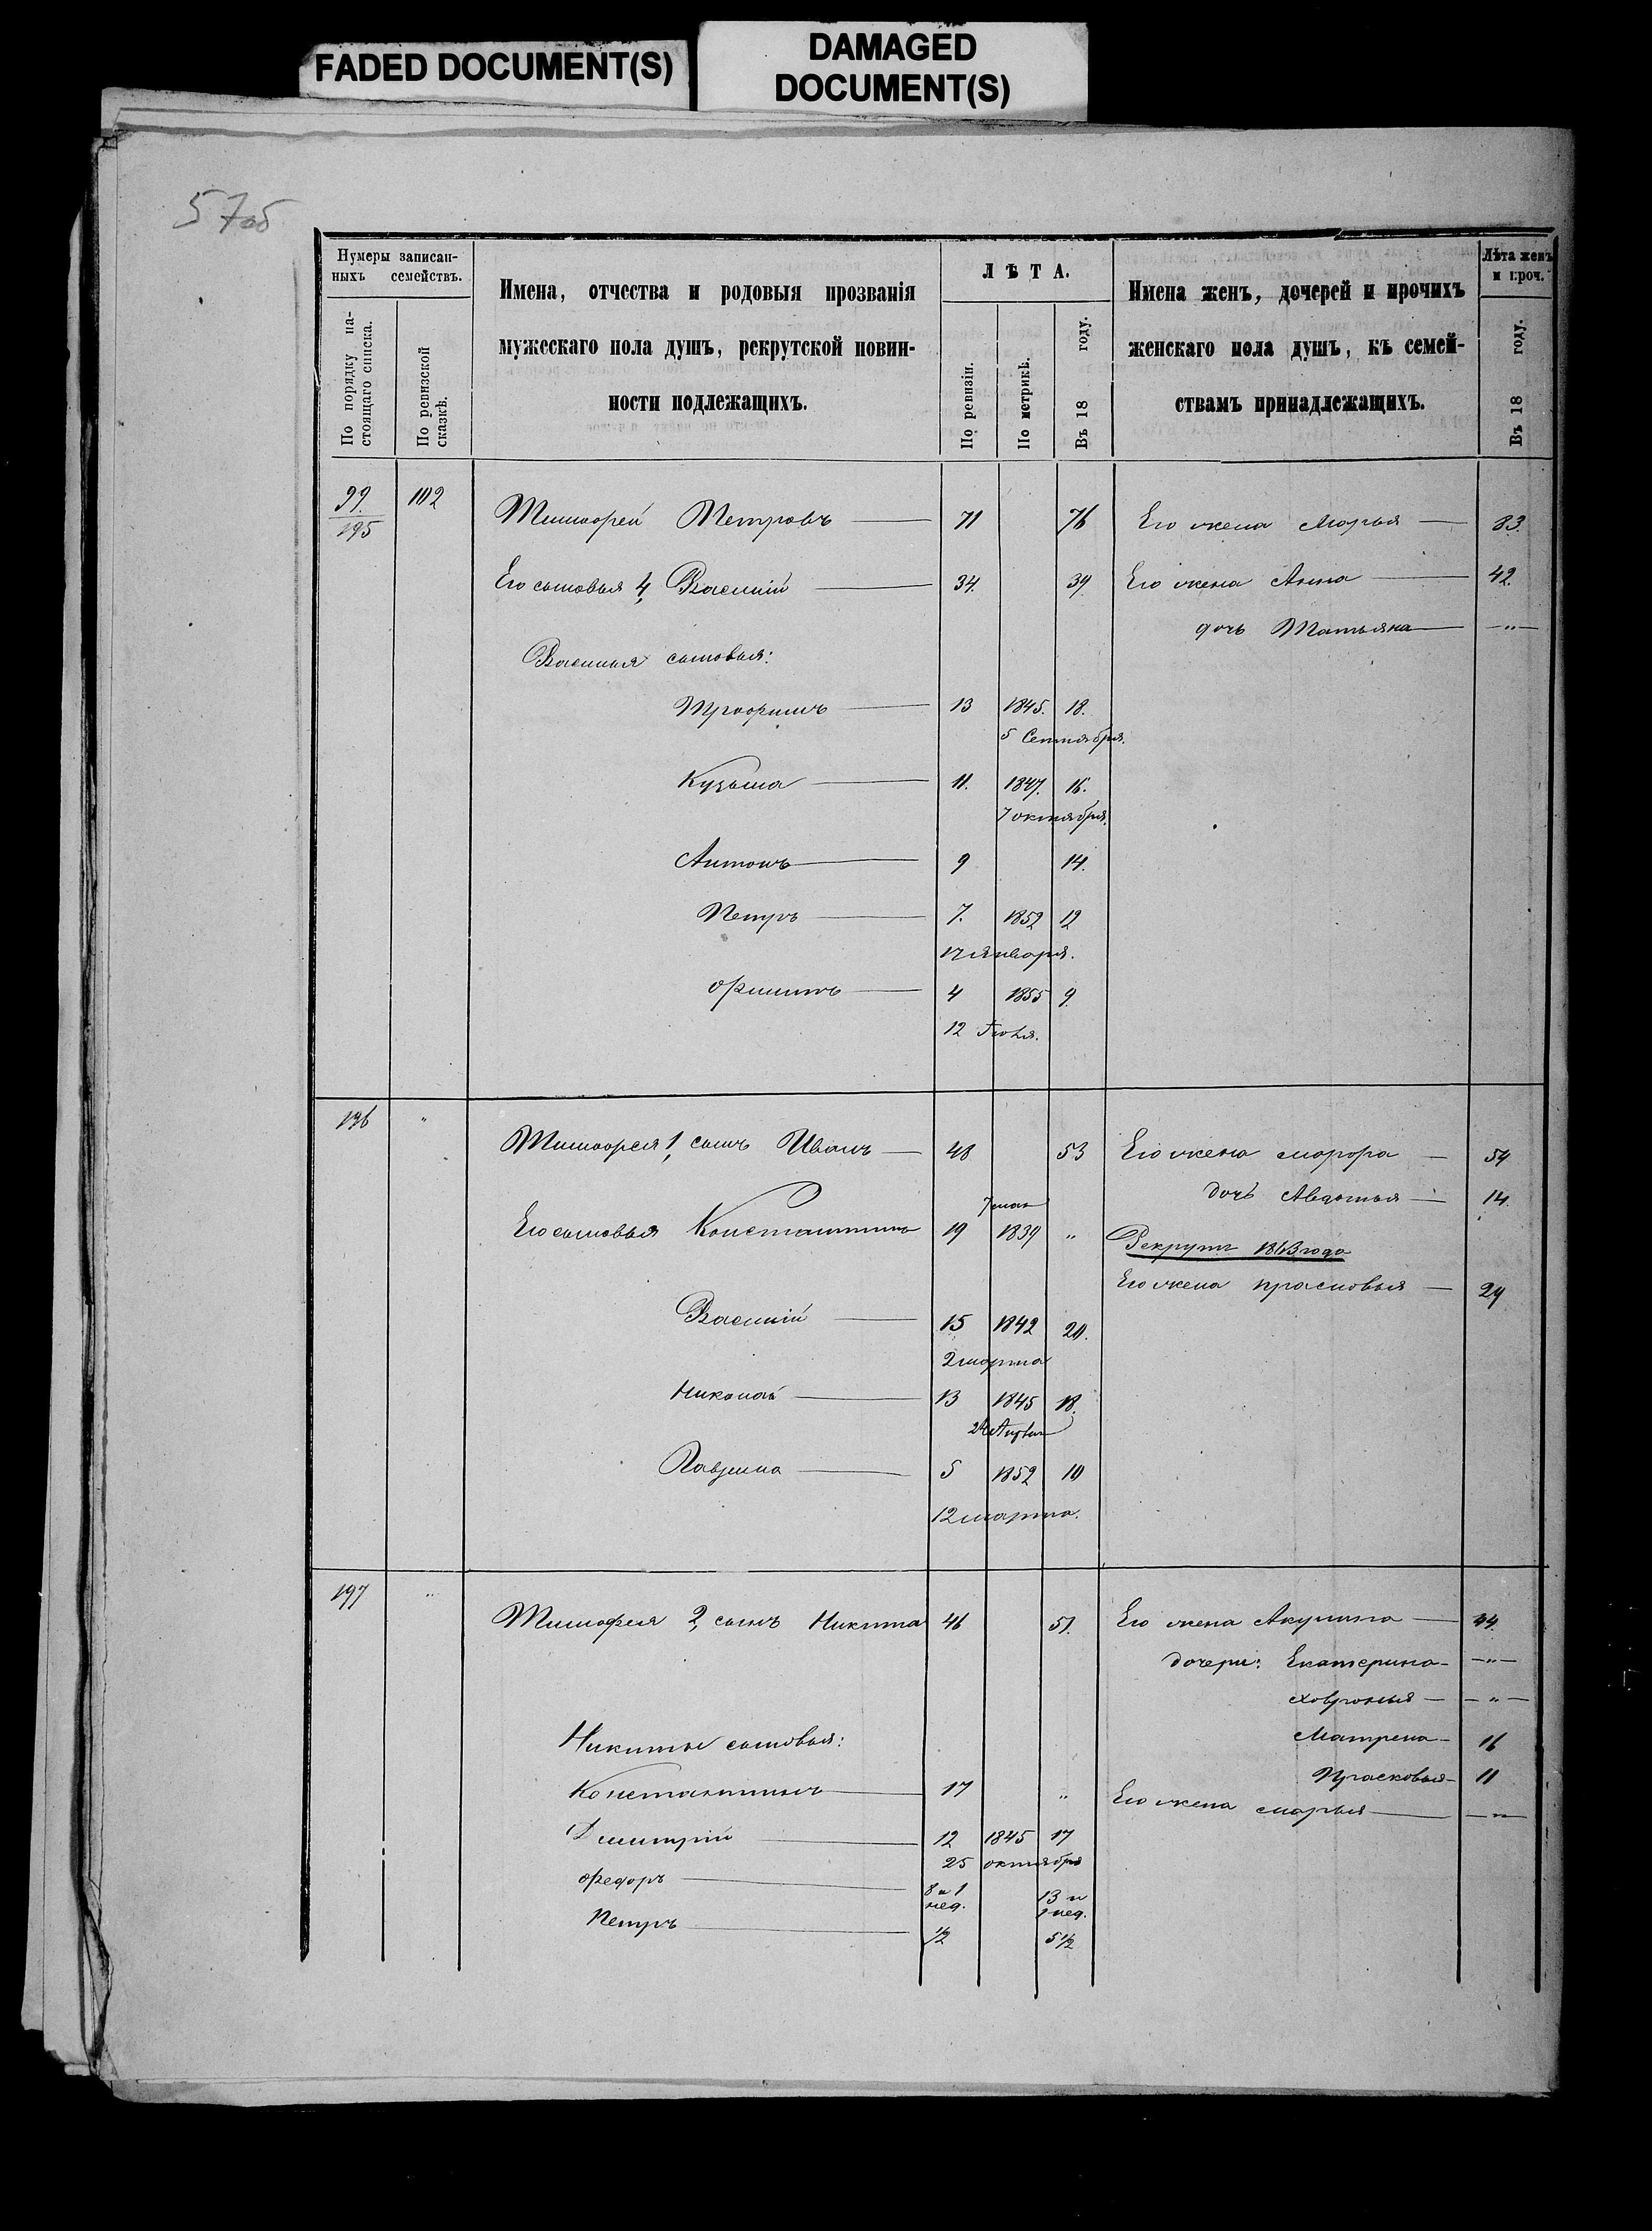 FADED DOCUMENT(S)
DAMAGED
DOCUMENT(S)
57об
Нумеры записан-
ныхъ семействъ.
По порядку на-
стоящаго списка.
По ревизской
сказкѣ.
Имена, отчества и родовыя прозванія
мужескаго пола душъ, рекрутской повин-
ности подлежащихъ.
ЛѢТА.
По ревизіи.
По метрикѣ.
Въ 18 году.
Имена женъ, дочерей и прочихъ
женскаго пола душъ, къ семей-
ствамъ принадлежащихъ.
Лѣта женъ
и проч.
Въ 18 году.
99. 102 Тимофей Петровъ 71 76 Его жена Марья 83.
195
Его сыновья 4, Василий 34. 39 Его жена Анна 42.
дочь Татьяна — " —
Василия сыновья:
Трофимъ 13 1845. 18.
5 Сентября.
Кузьма 11. 1847. 16.
7 октября.
Антонъ 9 14.
Петръ 7. 1852 12
17 января.
Филипъ 4 1855 9.
12 Июля.
196 " Тимофея 1, сынъ Иванъ 48 53 Его жена 54
дочь Авдотья 14.
7 мая
Его сыновья Константинъ 19 1839 " Рекрутъ 1863 года
Его жена Прасковья 24
Василий 15 1842 20.
2 марта
Николай 13 1845 18.
Апреля
5 1852 10
12 марта.
197 " Тимофея 2, сынъ Никита 46 51. Его жена Акулина 44.
дочери: Екатерина — " —
Хавронья — " —
Матрена 16
Никиты сыновья:
Прасковья 11
Константинъ 17 " Его жена Марья — " —
Дмитрій 12 1845 17
25 октября
Федоръ 8 и 1 13 и
нед. 1 нед.
Петръ 1/2 5 1/2